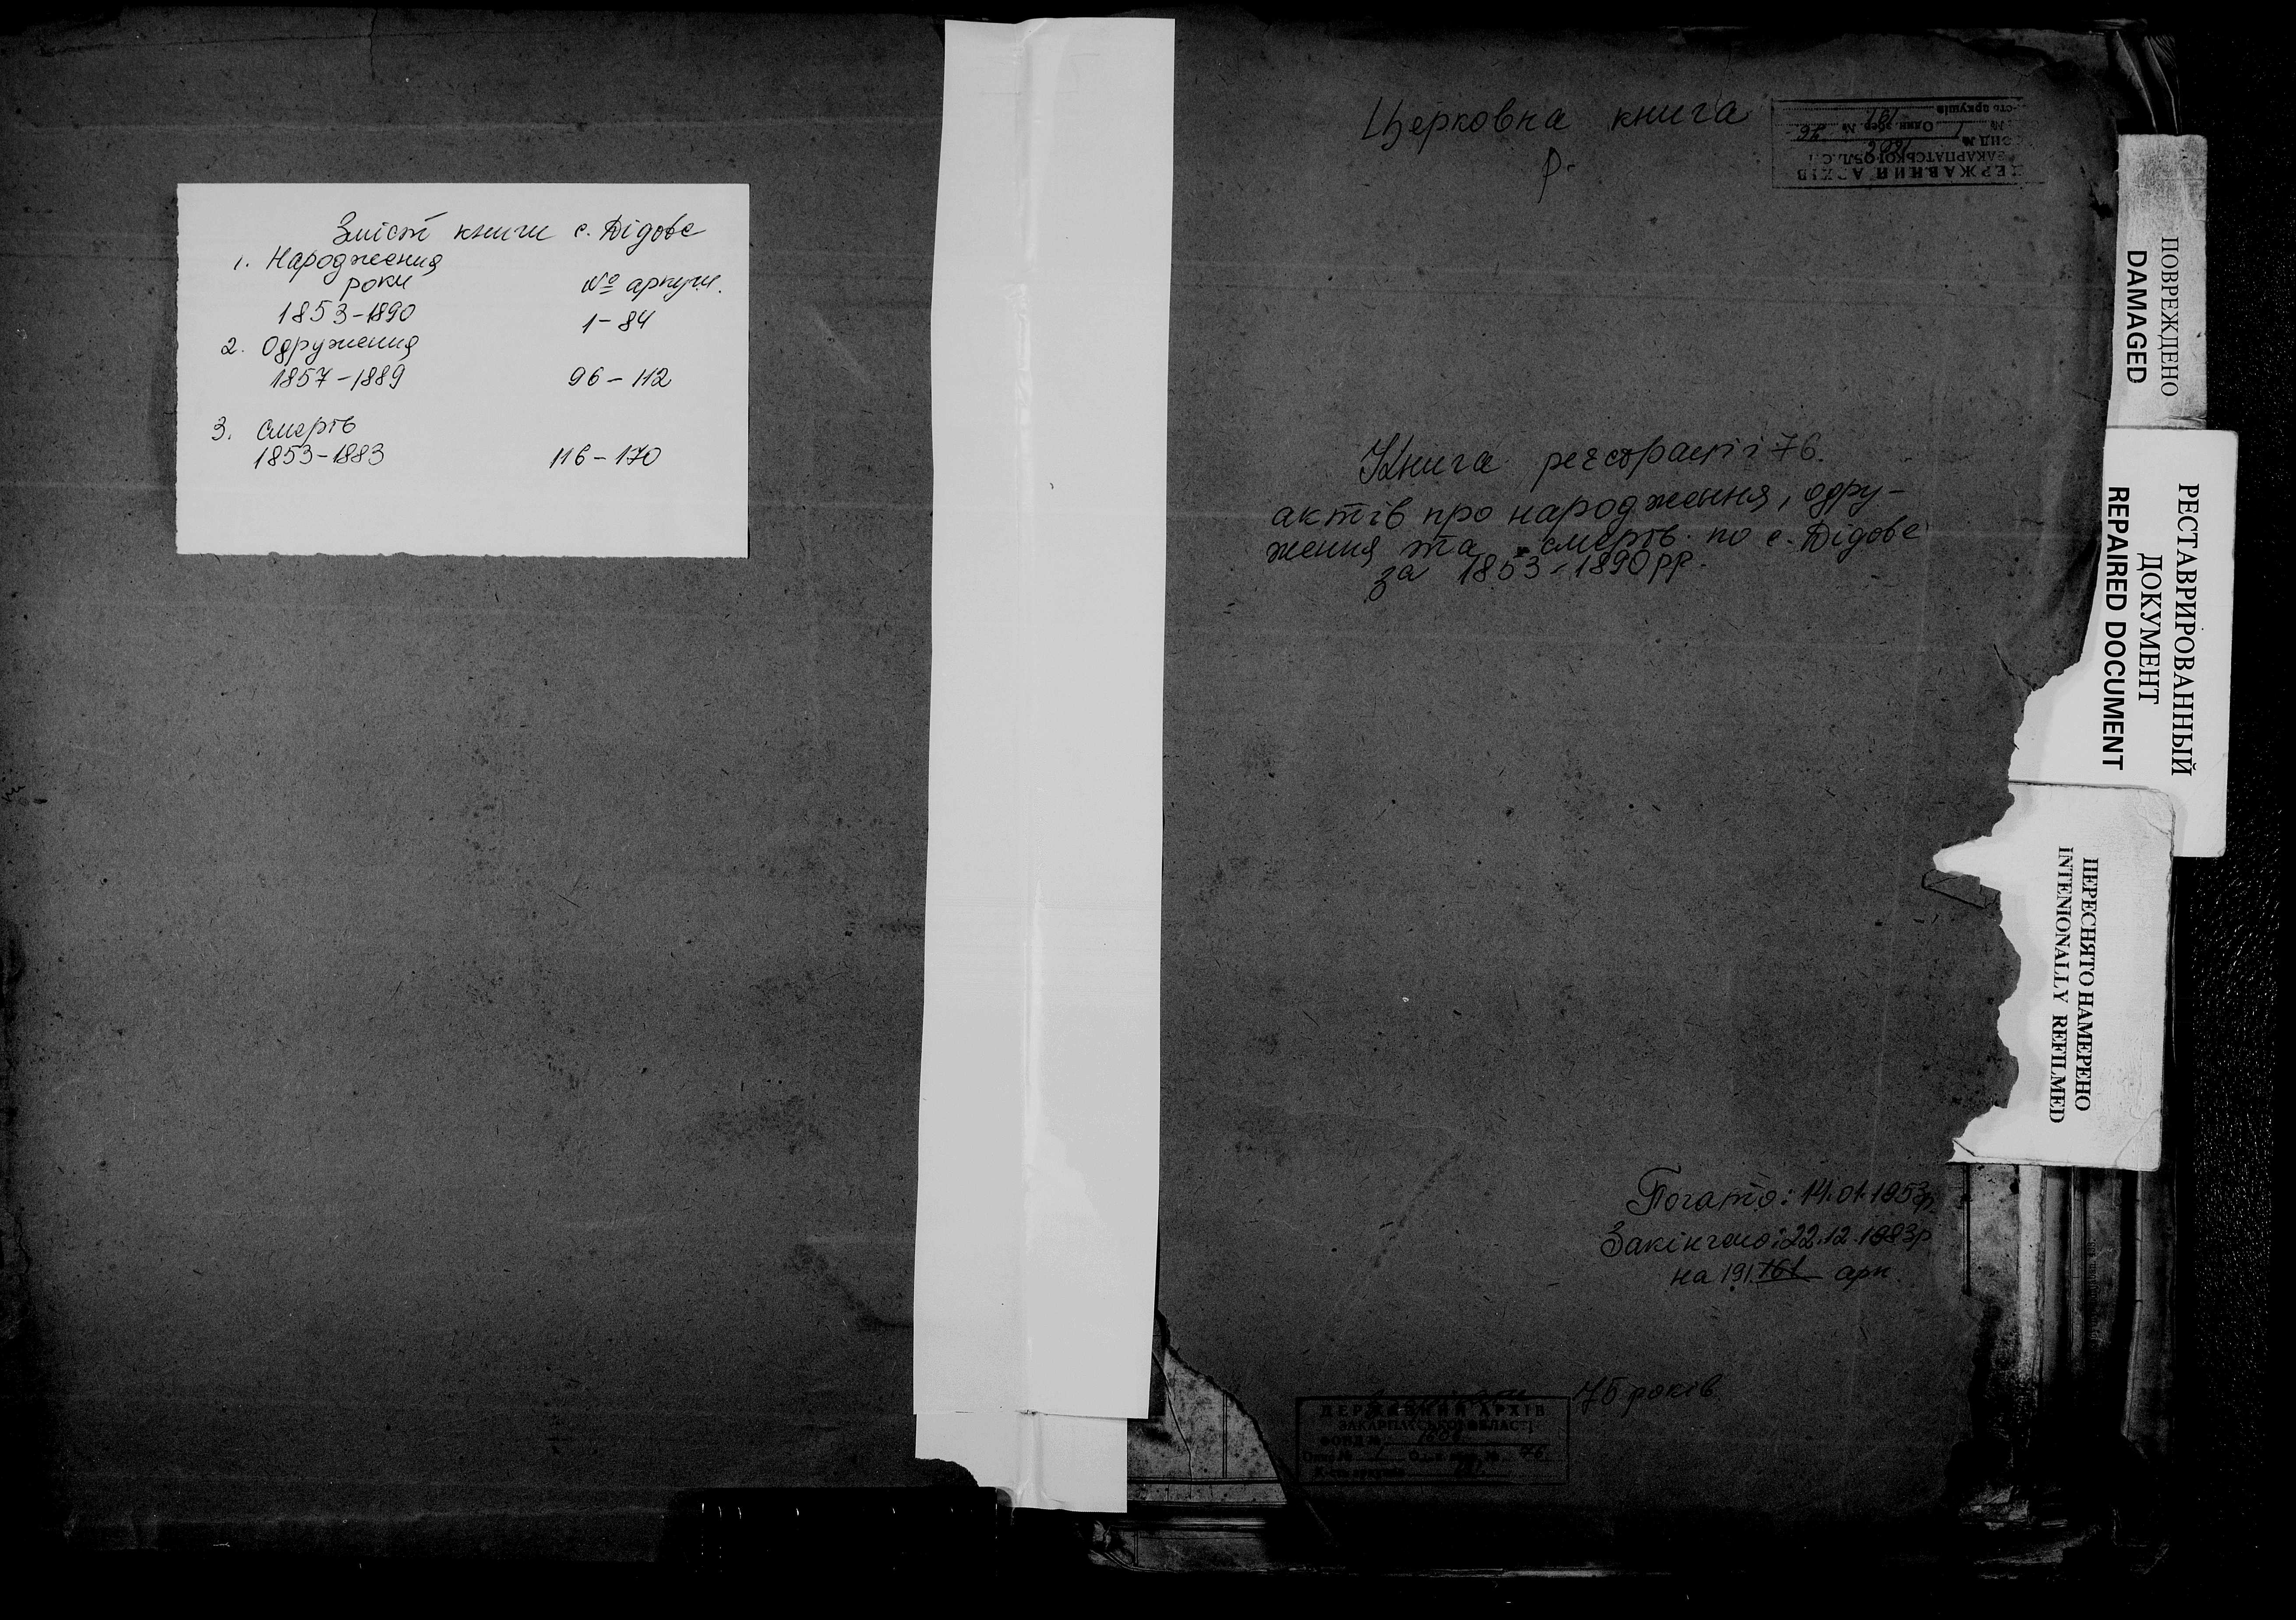 Зміст книги с. Дідове
1. Народження
роки № аркуш.
1853-1890 1-84
2. Одруження
1857-1889 96-112
3. Смерть
1853-1883 116-170
Церковна книга
р.
ДЕРЖАВНИЙ АРХІВ
ЗАКАРПАТСЬКОЇ
№ 1 Один. збер. № 76
191
Книга реєстрації 76.
актів про народження, одру-
ження та смерть по с. Дідове
за 1853-1890 рр.
Почато: 14.01.1853р.
Закінчено: 22.12.1883р
на 191 161 арк.
75 років
ДЕРЖАВНИЙ АРХІВ
ЗАКАРПАТСЬКОЇ ОБЛАСТІ
ФОНД №
76
ПОВРЕЖДЕНО
DAMAGED
РЕСТАВРИРОВАННЫЙ
ДОКУМЕНТ
REPAIRED DOCUMENT
ПЕРЕСНЯТО НАМЕРЕНО
INTENIONALLY REFILMED